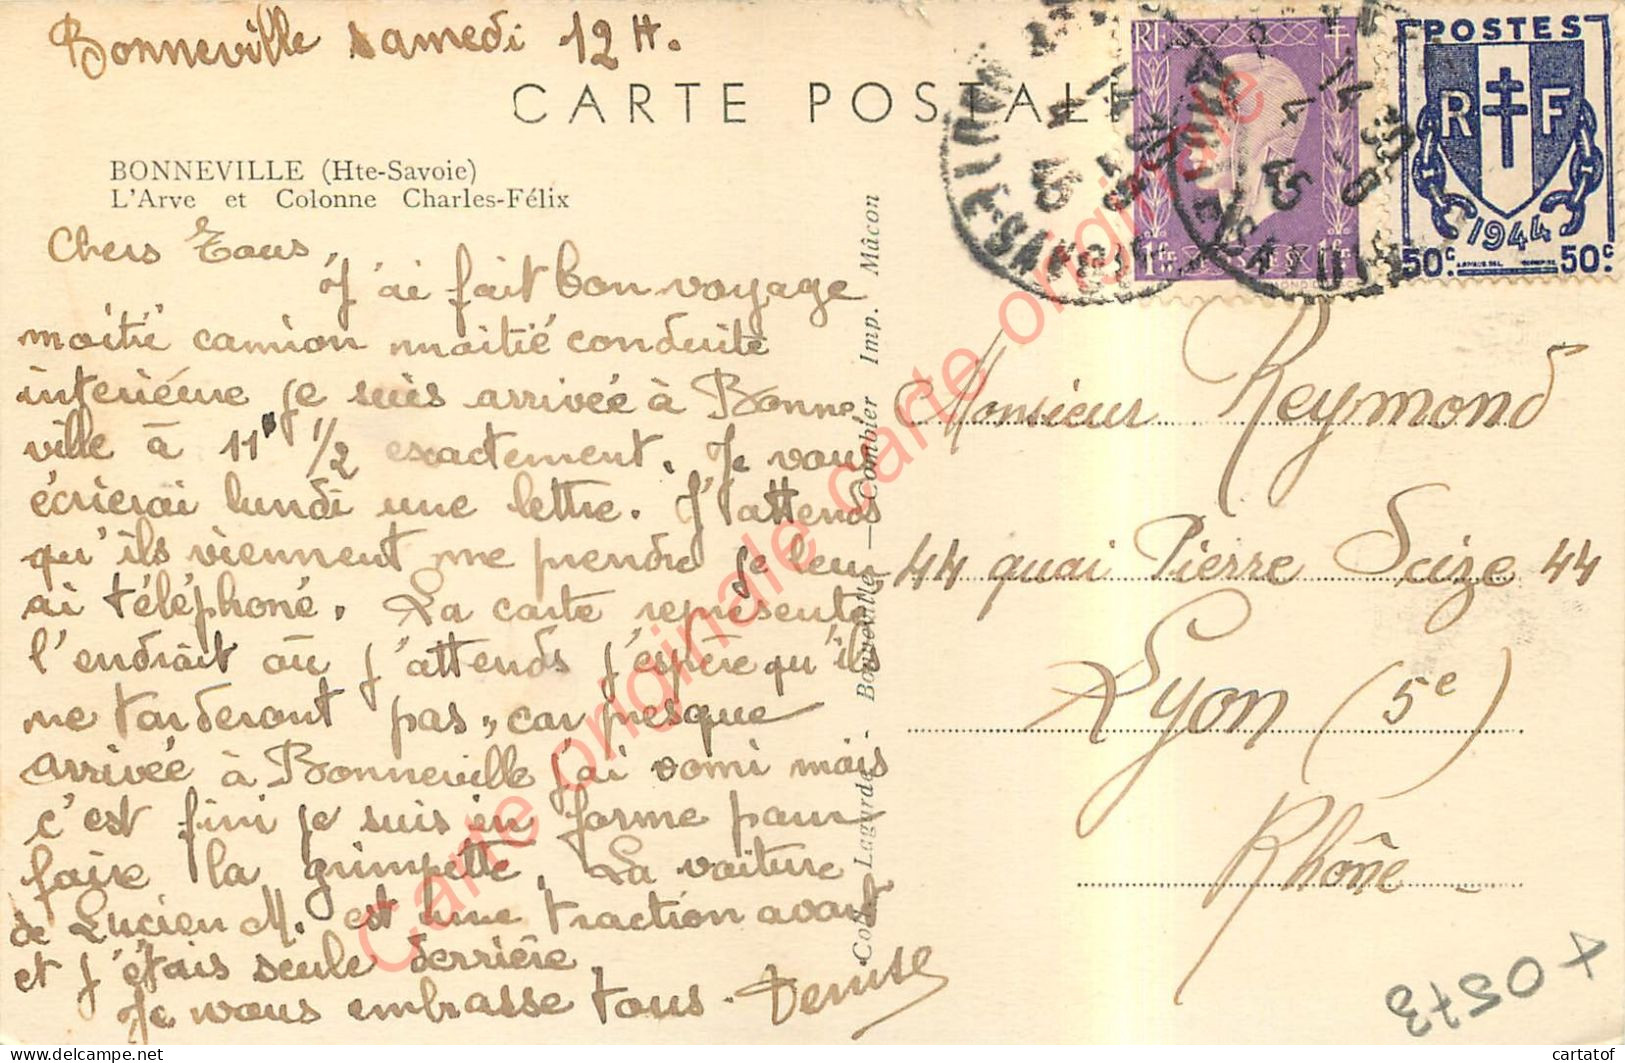 Bonneville samedi 12 H.
CARTE POSTALE
BONNEVILLE (Hte-Savoie)
L'Arve et Colonne Charles-Félix
Chers Tous,
J'ai fait bon voyage
moitié camion moitié conduite
interiéure je suis arrivée à Bonne
ville à 11h 1/2 exactement. Je vous
écrierai lundi une lettre. J'attends
qu'ils viennent me prendre je leur
ai téléphoné. La carte représente
l'endroit où j'attends j'espère qu'ils
ne tarderont pas, car presque
arrivée à Bonneville j'ai vomi mais
c'est fini je suis en forme pour
faire la grimpette. La voiture
de Lucien M. est une traction avant
et j'étais seule derrière.
Je vous embrasse tous. Denise
Coll. Lagarde - Bonneville — Combier Imp. Mâcon
RF
1fr 1fr
POSTES
RF
1944
50c. 50c.
4 45
4 45
Monsieur Reymond
44 quai Pierre Scize 44
Lyon (5e)
Rhône
Carte originale carte originale carte originale
70573
cartatof
delcampe.net